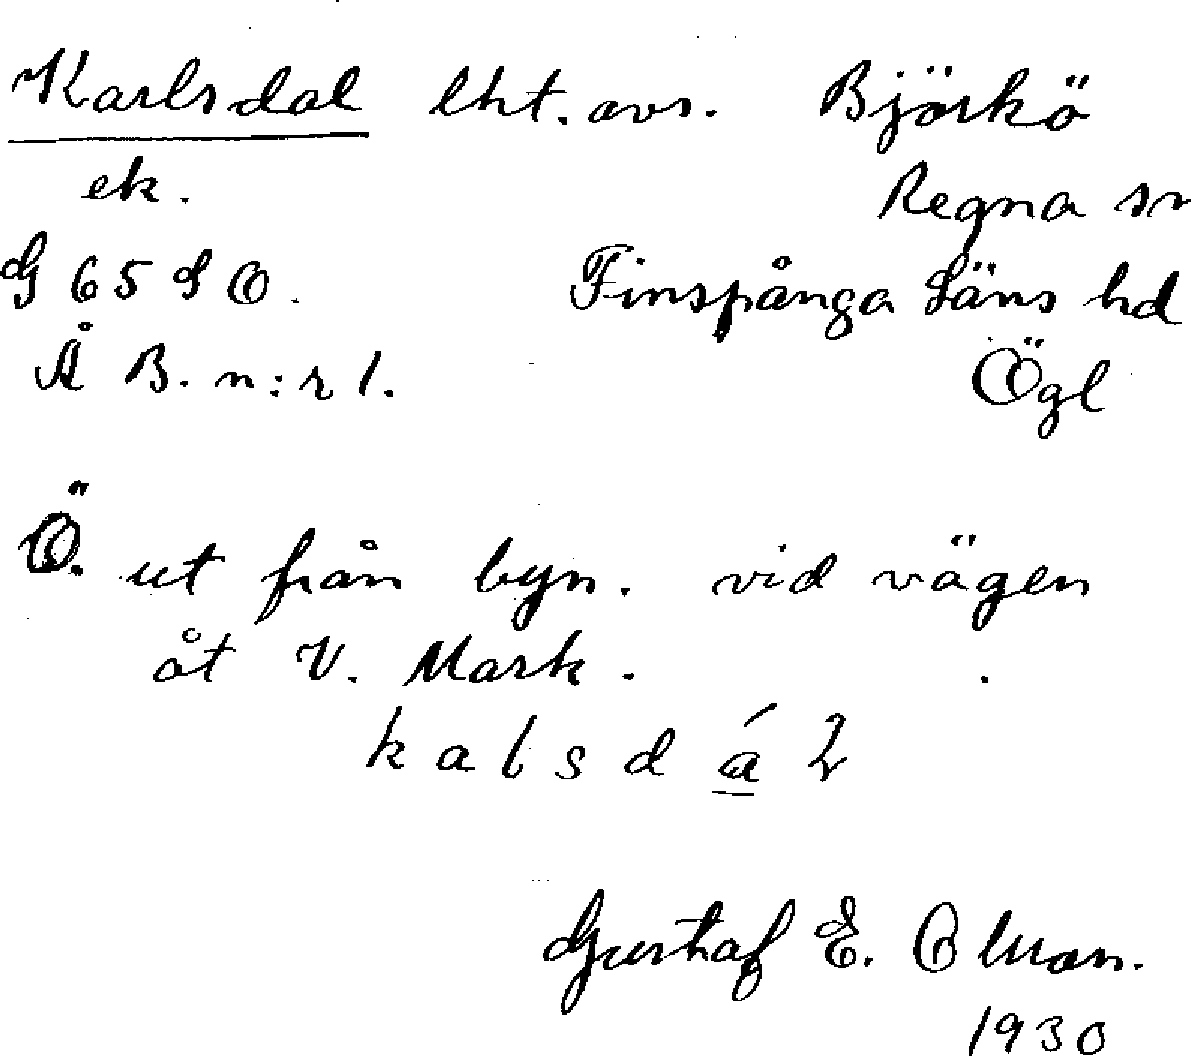 Karlsdal lht. avs. Björkö
ek. Regna sn
G 65 S O. Finspånga Läns hd
Å B. n:r 1. Ögl
Ö. ut från byn. vid vägen
åt V. Mark.
k a l s d á
Gustaf E.
1930